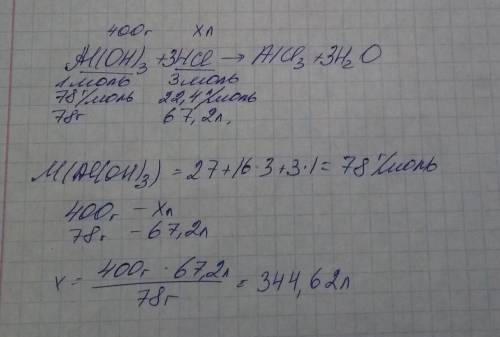 400г хл
Al(OH)₃ + 3HCl → AlCl₃ + 3H₂O
1 моль 3 моль
78 г/моль 22,4 л/моль
78г 67,2л,
M(Al(OH)₃) = 27+16·3+3·1 = 78 г/моль
400г – хл
78г – 67,2л
x = 400г · 67,2л / 78г = 344,62л